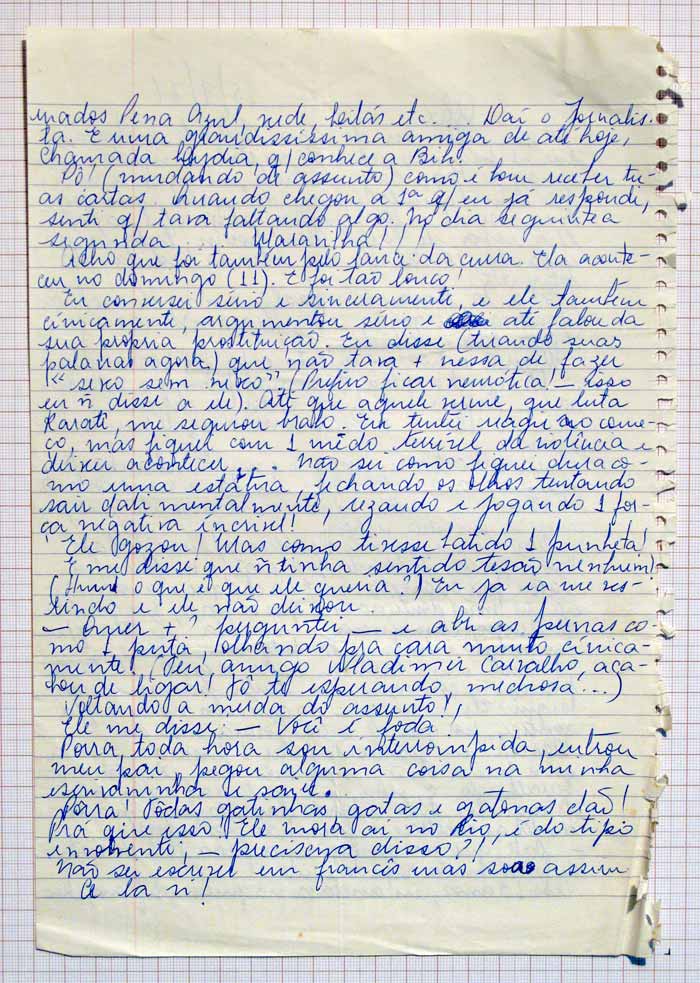 mados Pena Azul, rede, leilás etc... Daí o Jornalis-
ta. E uma grandississima amiga de até hoje,
chamada Lydia, q/ conhece a Bih.
Pô! (mudando de assunto) como é bom receber tu-
as cartas. Quando chegou a 1ª q/ eu já respondi,
senti q/ tava faltando algo. No dia seguinte a
segunda... Maravilha!!!
Acho que foi também pelo lance da cura. Ela aconte-
ceu no domingo (11). E foi tão louco!
Eu conversei sério e sinceramente, e ele também
cínicamente, argumentou sério e até falou da
sua própria prostituição. Eu disse (tuando suas
palavras agora) que não tava + nessa de fazer
"sexo sem nexo" (Prefiro ficar neurótica! — isso
eu ñ disse a ele). Até que aquele verme, que luta
Karatê, me segurou brabo. Eu tentei reagir no come-
ço, mas fiquei com 1 mêdo terrível da violência e
deixei acontecer... Não sei como fiquei dura co-
mo uma estátua, fechando os olhos tentando
sair dali mentalmente, rezando e jogando 1 for-
ça negativa incrível!
Ele gozou! Mas como tivesse batido 1 punheta!
E me disse que ñ tinha sentido tesão nenhum!
(Hum! o que é que ele queria?) Eu já ia me ves-
tindo e ele não deixou.
— Quer +? perguntei — e abri as pernas co-
mo 1 puta, olhando pra cara muito cínica-
mente! (Teu amigo Vladimir Carvalho, aca-
bou de ligar! Tô te esperando, medrosa...)
Voltando a merda do assunto!,
Ele me disse: — Você é foda!
Porra toda hora sou interrompida, entrou
meu pai, pegou alguma coisa na minha
escrivaninha e saiu.
Porra! Todas gatinhas gatas e gatonas dão!
Prá que isso! Ele mora aí no Rio, é do tipo
envolvente, — precisava disso?!
Não sei escrever em francês mas soa assim
C la vi!